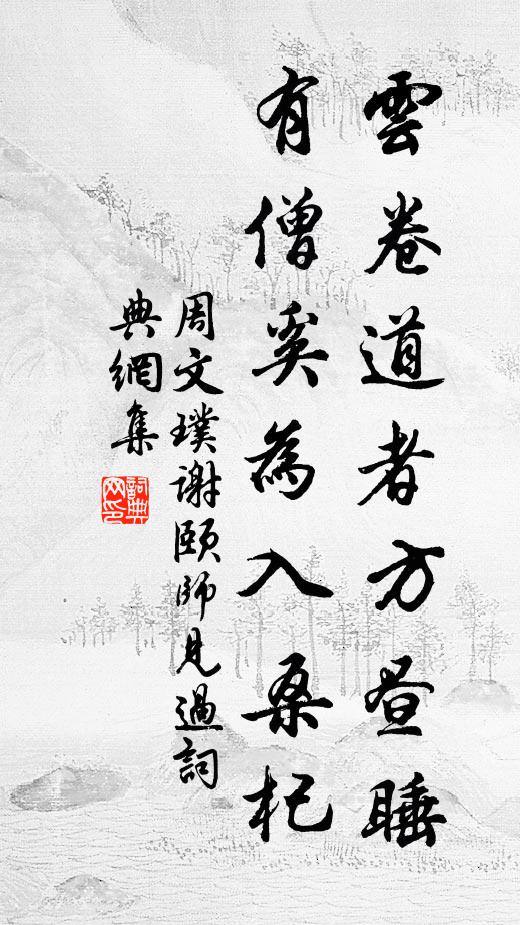 雲卷道者方晝睡
有僧奚為入桑杞
周文璞謝頤師見過詞
典網集
詞典網印